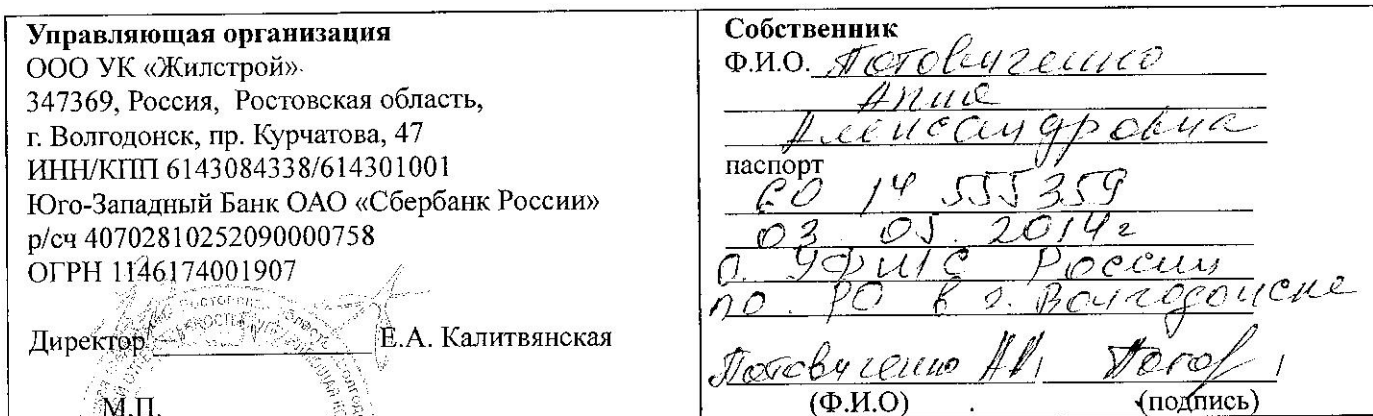 Управляющая организация
ООО УК «Жилстрой»
347369, Россия, Ростовская область,
г. Волгодонск, пр. Курчатова, 47
ИНН/КПП 6143084338/614301001
Юго-Западный Банк ОАО «Сбербанк России»
р/сч 40702810252090000758
ОГРН 1146174001907
Директор Е.А. Калитвянская
М.П.
Собственник
Ф.И.О.
Анна
Александровна
паспорт
60 14 555359
03. 05. 2014г
О. УФМС России
по РО в г. Волгодонске
(Ф.И.О) (подпись)